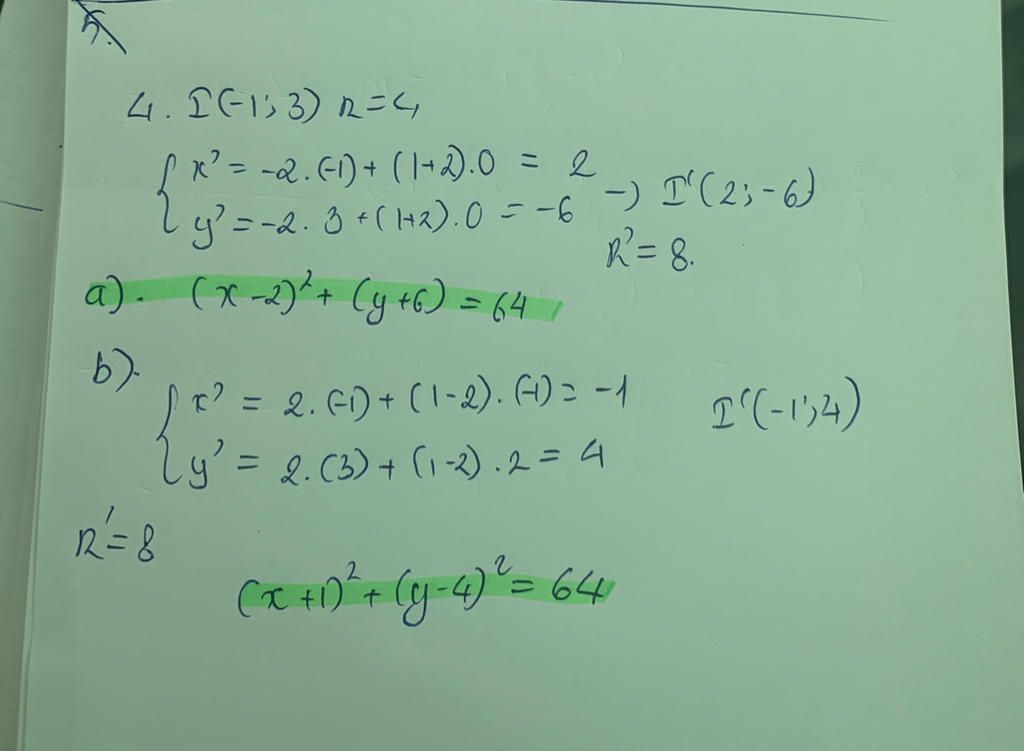 5.
4. I(-1; 3) R=4
{ x' = -2.(-1) + (1+2).0 = 2
{ y' = -2. 3 + (1+2).0 = -6 → I'(2; -6)
R' = 8.
a). (x-2)² + (y+6) = 64
b).
{ x' = 2.(-1) + (1-2).(-1) = -1
{ y' = 2.(3) + (1-2).2 = 4 I'(-1; 4)
R' = 8
(x+1)² + (y-4)² = 64